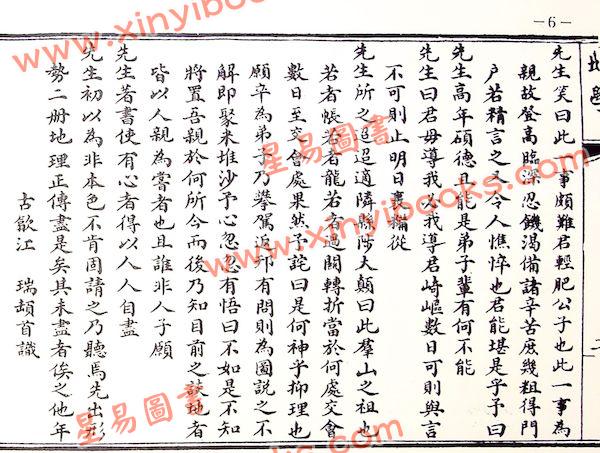 －6－
先生笑曰此一事頗難君輕肥公子也此一事為
親故登高臨深忍饑渴備諸辛苦庶幾粗得門
户若精言之又令人憔悴也君能堪是乎予曰
先生高年碩德且能是弟子輩有何不能
先生曰君毋導我必我導君崎嶇數日可則與言
不可則止明日裹糧從
先生所之迢迢適隣縣陟大顛曰此羣山之祖也
若者帳若者龍若者過關轉折當於何處交會
數日至交會處果然予詫曰是何神乎抑理也
願卒為弟子乃攀駕返邗有問則為圖說之不
解即聚米堆沙予心忽忽有悟曰不如是不知
將置吾親於何所今而後乃知目前之談地者
皆以人親為嘗者也且誰非人子願
先生著書使有心者得以人人自盡
先生初以為非本色不肯固請之乃聽焉先出形
勢二册地理正傳盡是矣其未盡者俟之他年
古歙江　瑞頡首識
www.xinyibooks.com
星易圖書
www.xinyibooks.com
星易圖書
www.xinyibooks.com
星易圖書